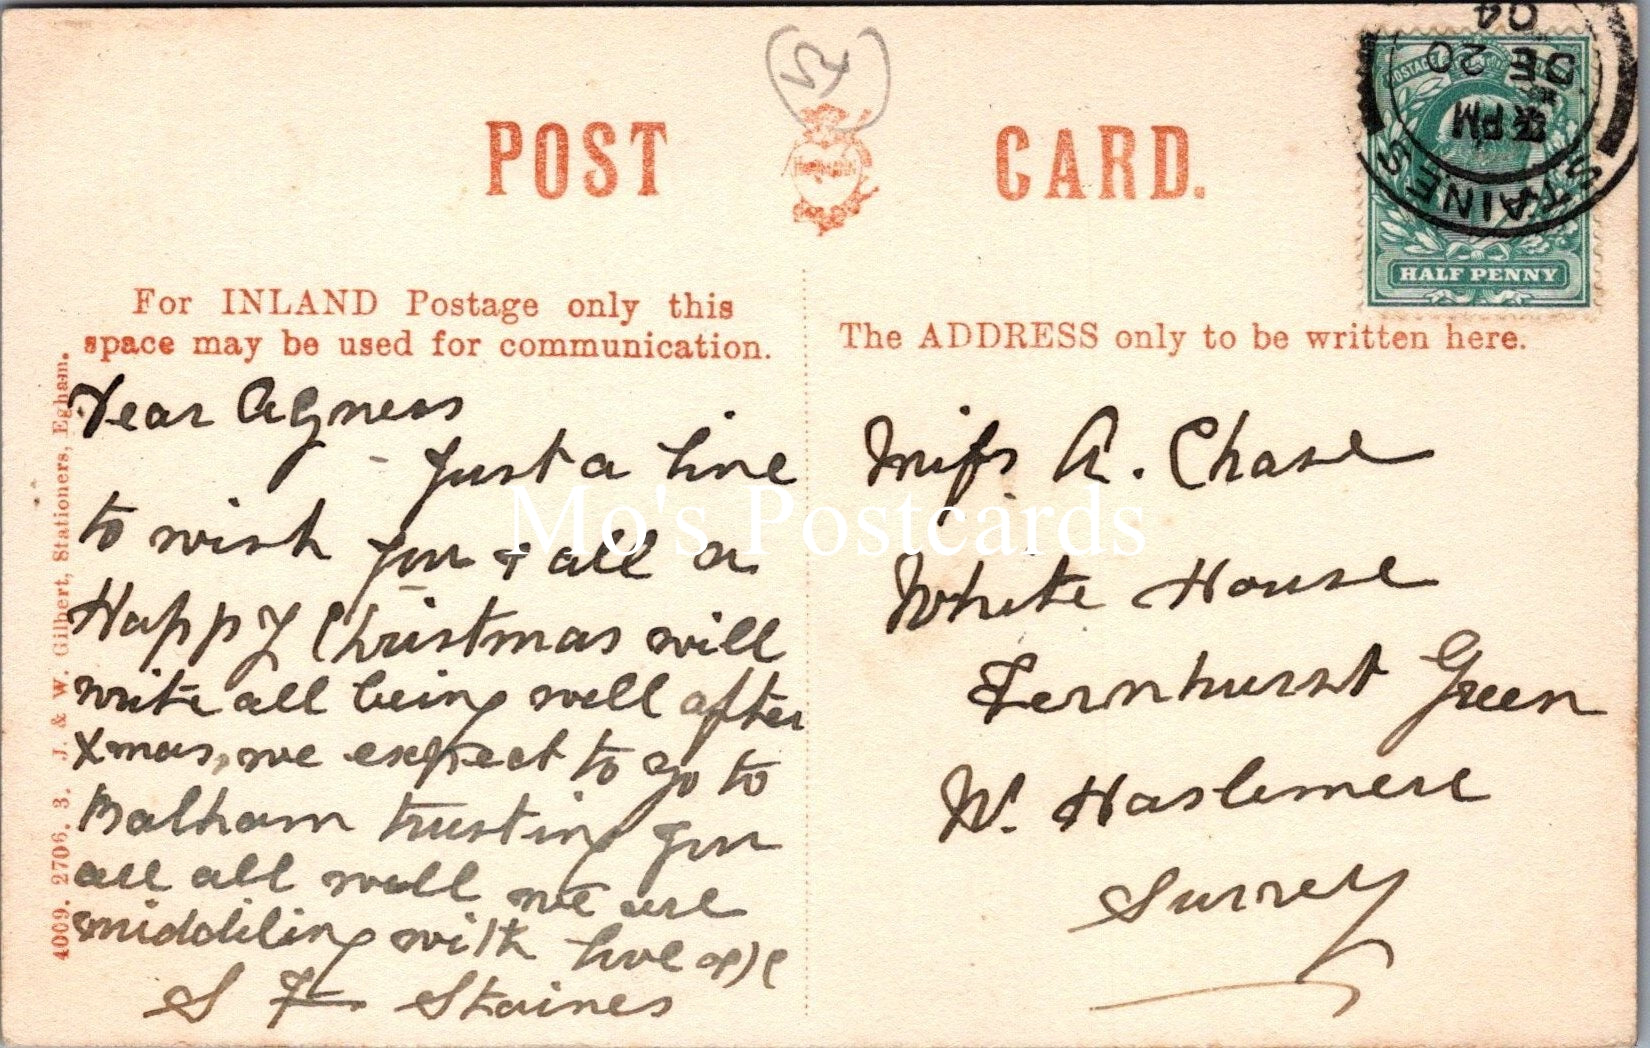 POST CARD.
For INLAND Postage only this
space may be used for communication.
The ADDRESS only to be written here.
HALF PENNY
STAINES
PM
DE 20
04
Dear Agness
Just a line
to wish you & all a
Happy Christmas will
write all being well after
Xmas, we expect to go to
Balham trusting you
are all well we are
middiling with love
S F Staines
Miss A. Chase
White House
Fernhurst Green
N. Haslemere
Surrey
4009. 2706. 3. J. & W. Gilbert, Stationers, Egham.
Mo's Postcards